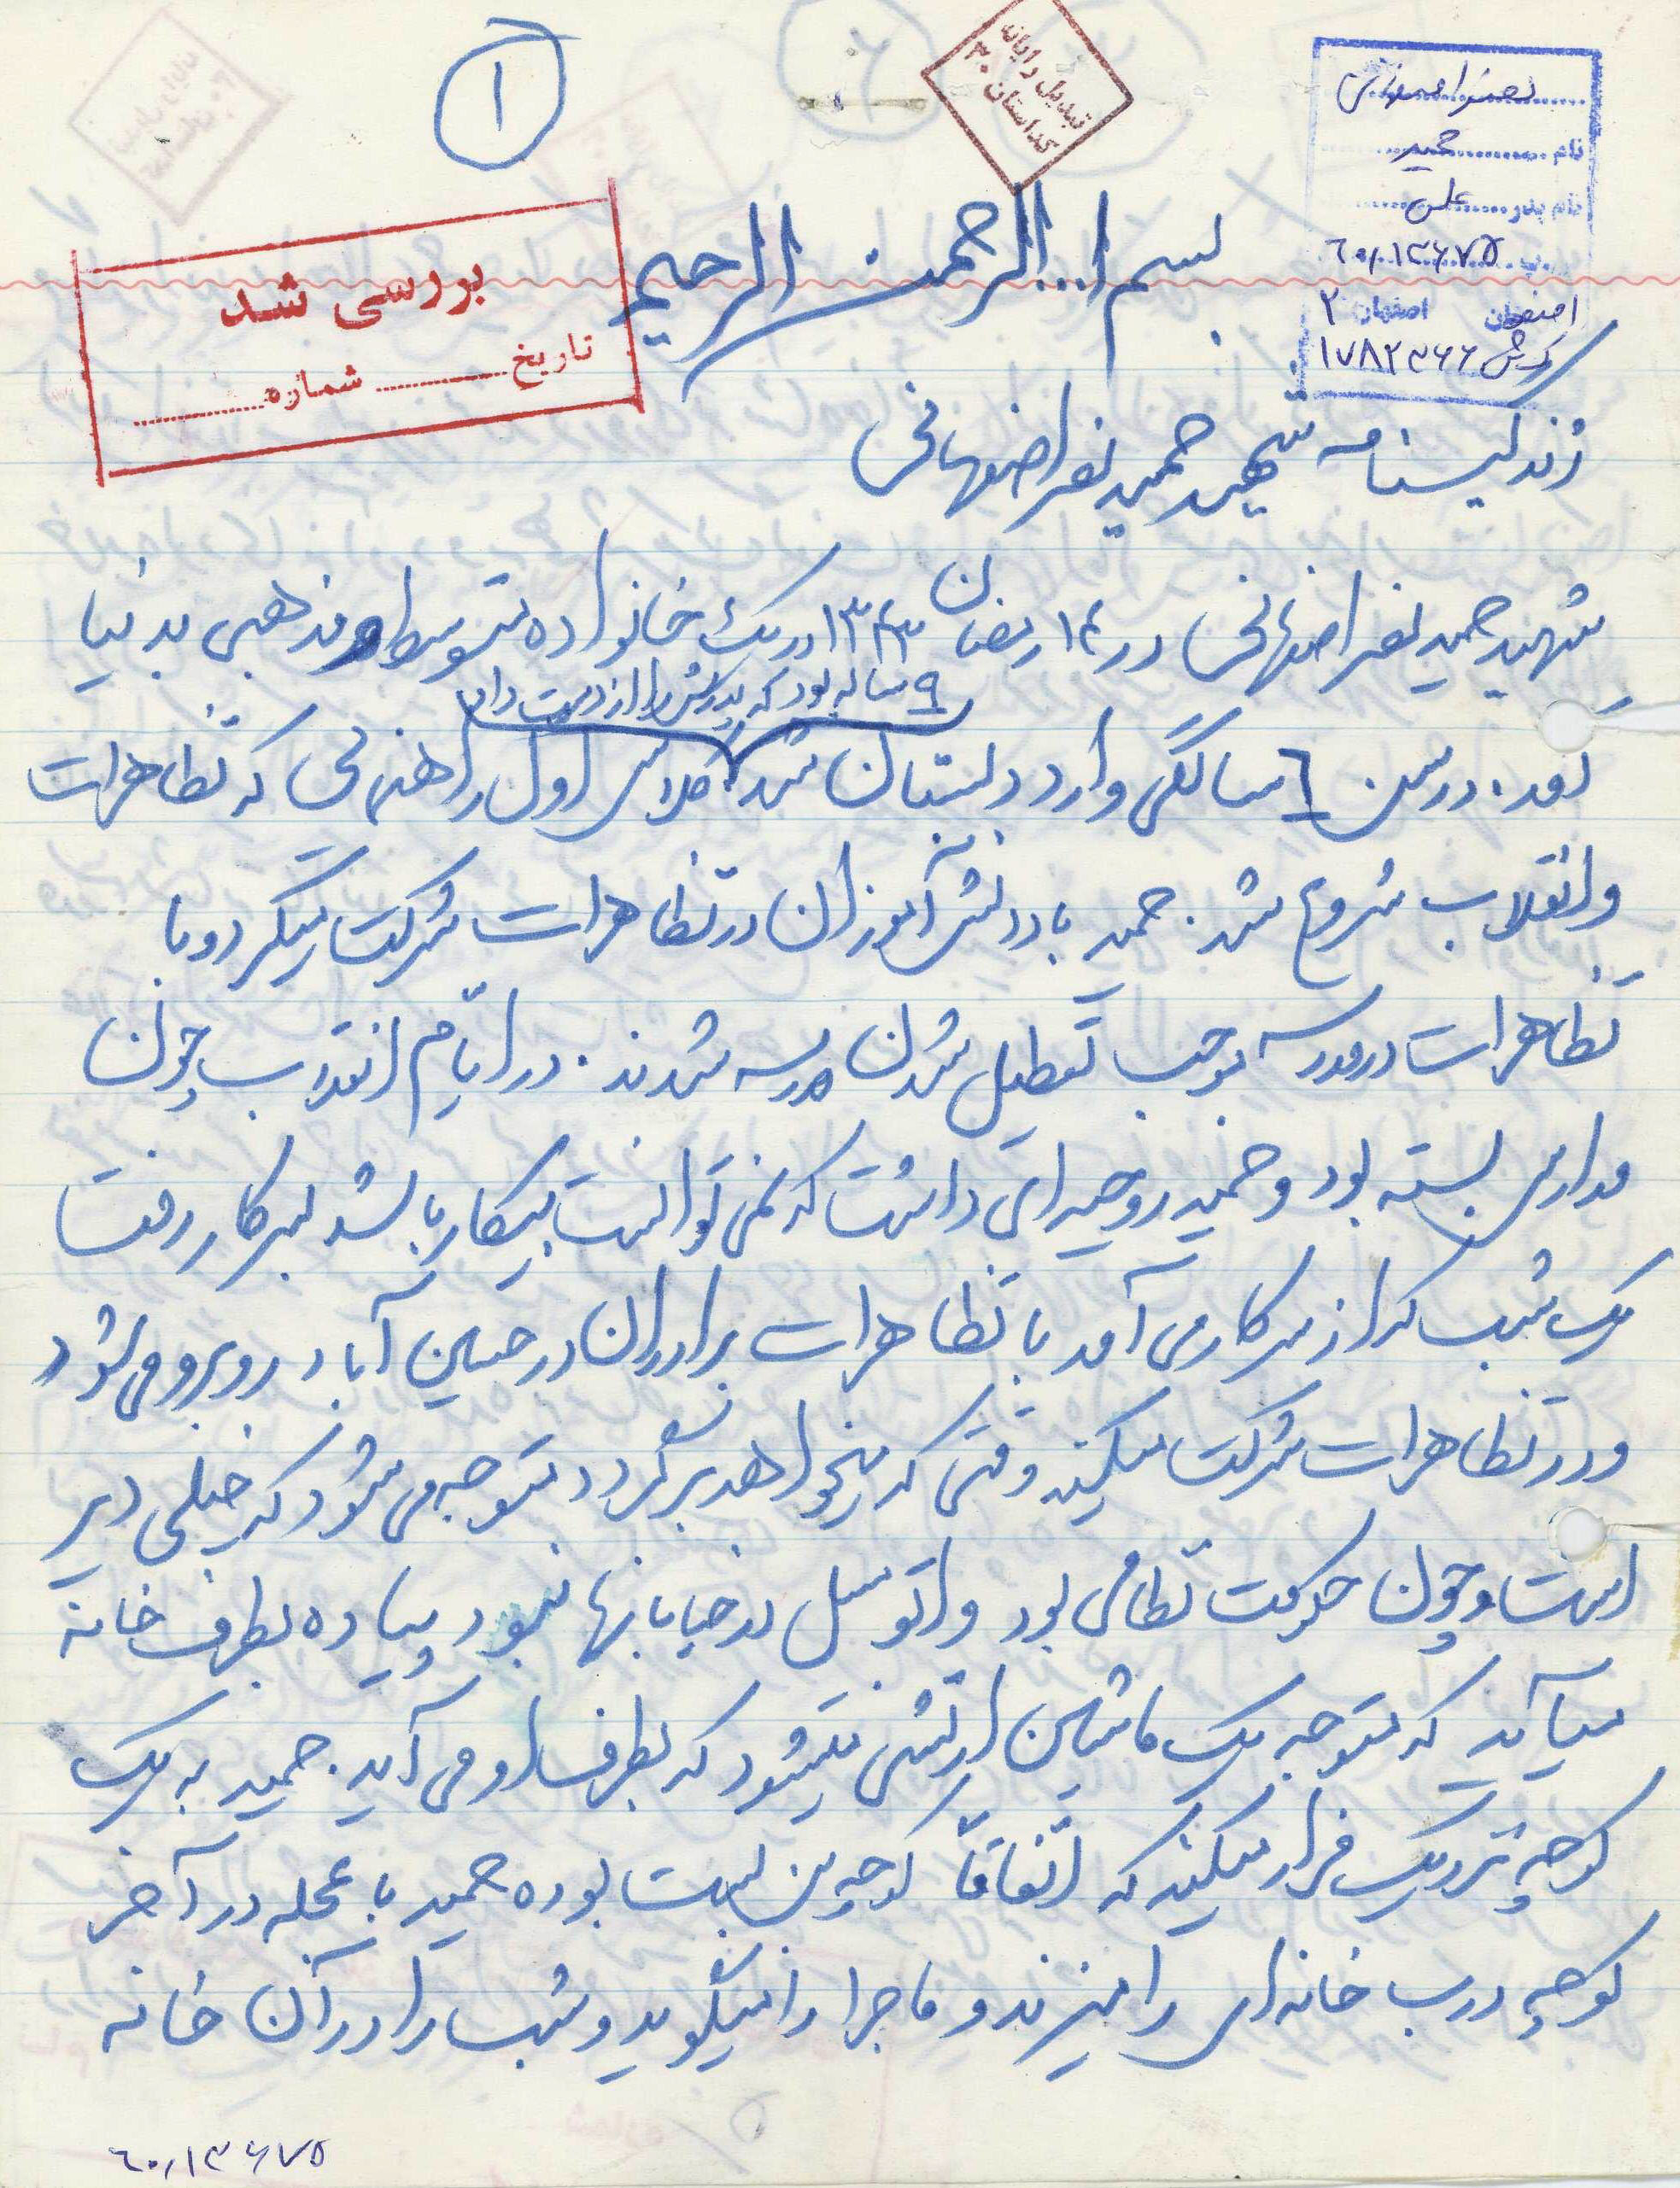 ۱
تبدیل رایان
کد استان ۳۰
نصر اصفهانی
نام حمید
نام پدر علی
۶۰۱۳۶۷۵
اصفهان ۲
۱۷۸۲۳۶۶
بررسی شد
تاریخ شماره
بسم ا... الرحمن الرحیم
زندگینامه شهید حمید نصر اصفهانی
شهید حمید نصر اصفهانی در ۱۴ رمضان ۱۳۴۳ در یک خانواده متوسط و مذهبی بدنیا
۹ ساله بود که پدرش را از دست داد
آمد. در سن ۶ سالگی وارد دبستان شد کلاس اول راهنمائی که تظاهرات
و انقلاب شروع شد. حمید با دانش آموزان در تظاهرات شرکت میکرد و با
تظاهرات در مدرسه موجب تعطیل شدن مدرسه شدند. در ایام انقلاب چون
مدارس بسته بود و حمید روحیه ای داشت که نمی توانست بیکار باشد سر کار رفت
یک شب که از سر کار می آمد با تظاهرات برادران در حسین آباد روبرو می شود
و در تظاهرات شرکت میکند وقتی که میخواهد برگردد متوجه می شود که خیلی دیر
است و چون حکومت نظامی بود و اتومبیل در خیابانها نبود پیاده بطرف خانه
میآید که متوجه یک ماشین ارتشی میشود که بطرف او می آید. حمید به یک
کوچه نزدیک فرار میکند که اتفاقاً کوچه بن بست بوده حمید با عجله در آخر
کوچه درب خانه ای را میزند و ماجرا را میگوید و شب را در آن خانه
۶۰۱۳۶۷۵